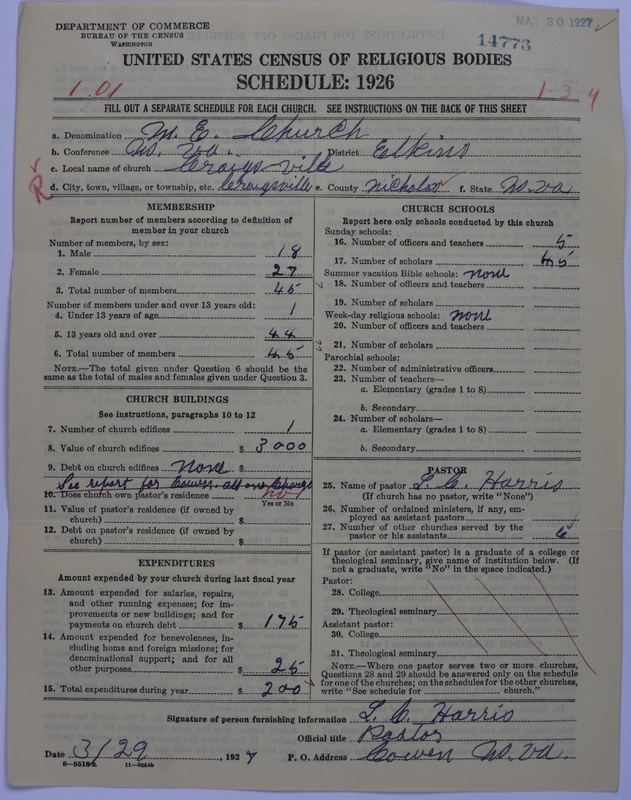 DEPARTMENT OF COMMERCE
BUREAU OF THE CENSUS
WASHINGTON
MAR 30 1927
14773
UNITED STATES CENSUS OF RELIGIOUS BODIES
SCHEDULE: 1926
1.01
1-3-4
FILL OUT A SEPARATE SCHEDULE FOR EACH CHURCH. SEE INSTRUCTIONS ON THE BACK OF THIS SHEET
a. Denomination M. E. Church
b. Conference W. Va. District Elkins
c. Local name of church Craigsville
R
d. City, town, village, or township, etc. Craigsville e. County Nicholas f. State W. Va
MEMBERSHIP
Report number of members according to definition of
member in your church
Number of members, by sex:
1. Male 18
2. Female 27
3. Total number of members 45
Number of members under and over 13 years old:
4. Under 13 years of age 1
5. 13 years old and over 44
6. Total number of members 45
NOTE.—The total given under Question 6 should be
same as the total of males and females given under Question 3.
CHURCH BUILDINGS
See instructions, paragraphs 10 to 12
7. Number of church edifices 1
8. Value of church edifices $ 3000
9. Debt on church edifices None $
See report for Cowen. all one Charge
10. Does church own pastor's residence no
Yes or No
11. Value of pastor's residence (if owned by
church) $
12. Debt on pastor's residence (if owned by
church) $
EXPENDITURES
Amount expended by your church during last fiscal year
13. Amount expended for salaries, repairs,
and other running expenses; for im-
provements or new buildings; and for
payments on church debt $ 175
14. Amount expended for benevolences, in-
cluding home and foreign missions; for
denominational support; and for all
other purposes $ 25
15. Total expenditures during year $ 200
CHURCH SCHOOLS
Report here only schools conducted by this church
Sunday schools:
16. Number of officers and teachers 5
17. Number of scholars 65
Summer vacation Bible schools: none
18. Number of officers and teachers
19. Number of scholars
Week-day religious schools: none
20. Number of officers and teachers
21. Number of scholars
Parochial schools:
22. Number of administrative officers
23. Number of teachers—
a. Elementary (grades 1 to 8)
b. Secondary
24. Number of scholars—
a. Elementary (grades 1 to 8)
b. Secondary
PASTOR
25. Name of pastor L. C. Harris
(If church has no pastor, write "None")
26. Number of ordained ministers, if any, em-
ployed as assistant pastors
27. Number of other churches served by the
pastor or his assistants 6
If pastor (or assistant pastor) is a graduate of a college or
theological seminary, give name of institution below. (If
not a graduate, write "No" in the space indicated.)
Pastor:
28. College
29. Theological seminary
Assistant pastor:
30. College
31. Theological seminary
NOTE.—Where one pastor serves two or more churches,
Questions 28 and 29 should be answered only on the schedule
for one of the churches; on the schedules for the other churches,
write "See schedule for church."
Signature of person furnishing information L. C. Harris
Official title Pastor
Date 3/29, 1927 P. O. Address Cowen W. Va.